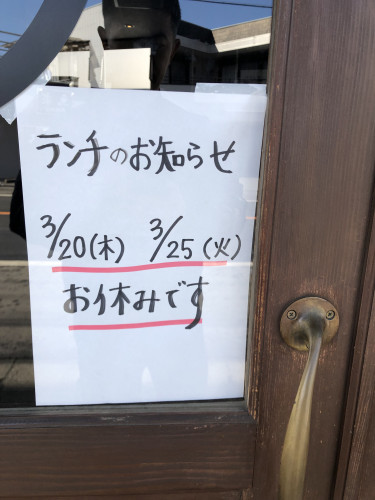 ランチのお知らせ
3/20(木) 3/25(火)
お休みです